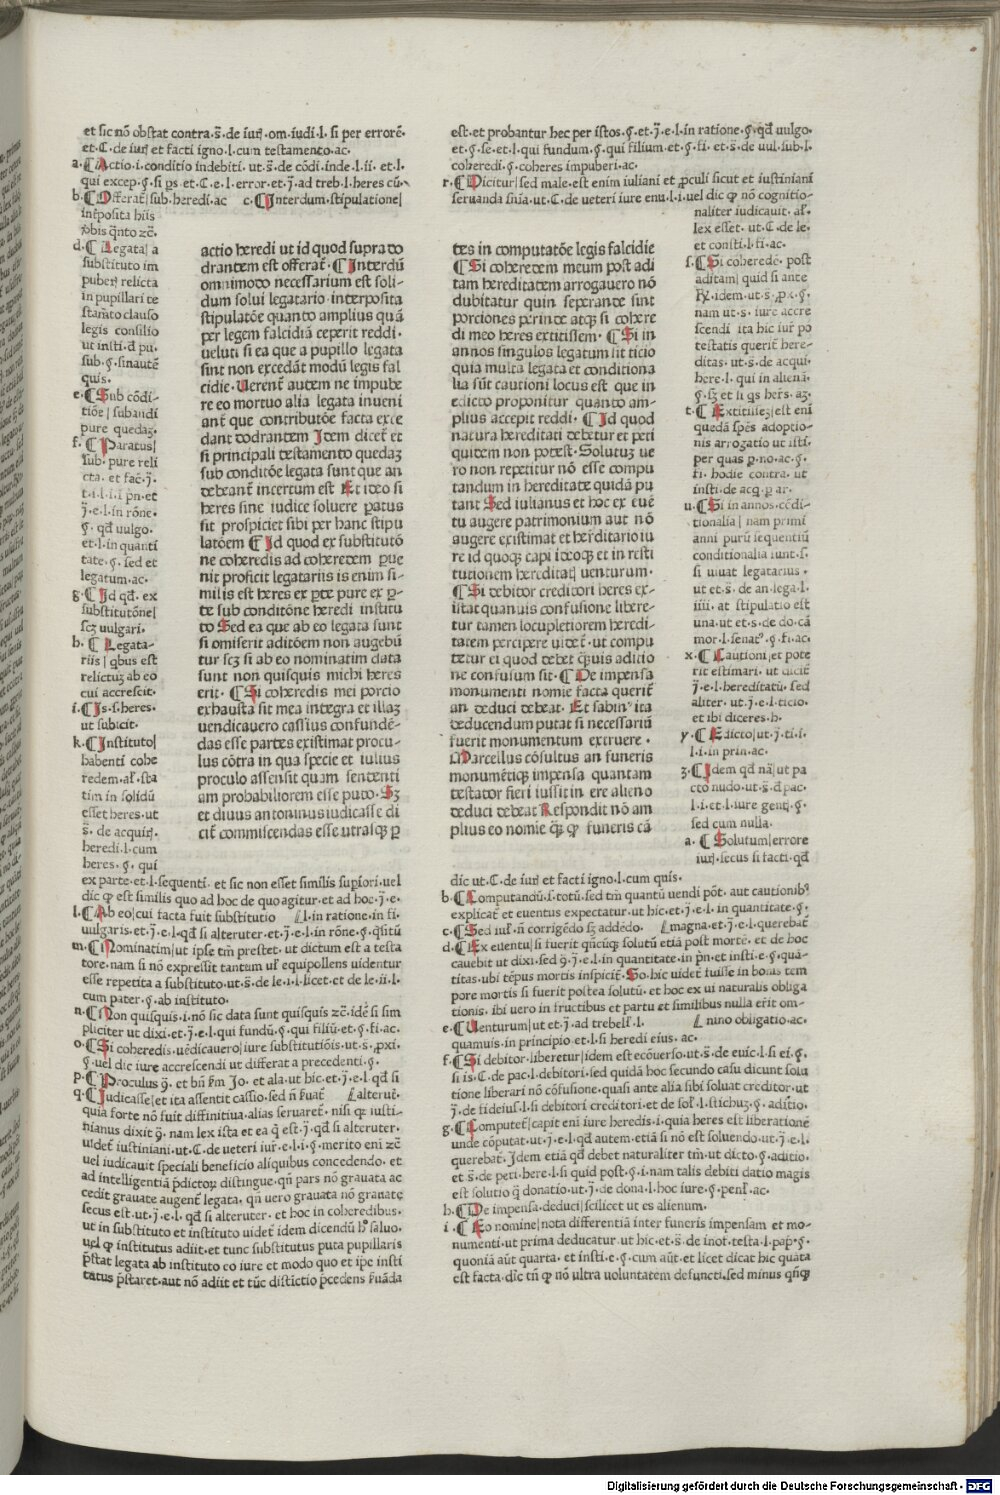 et sic nõ obstat contra·s̃·de iurꝭ·om·iudi·l·si per errorẽ·
et·C·de iurꝭ et facti igno·l·cum testamento·ac·
a·¶Actio·i·conditio indebiti·ut·s̃·de cõdi·inde·l·ii·et·l·
qui excep·§·si
b·¶Offerat̃|sub·heredi·ac c·¶Interdum·stipulatione|
interposita hiis
d·¶Legata|a
substituto im
puberꝭ relicta
in pupillari te
stam̃to clauso
legis consilio
ut insti·đ pu·
sub·§·sinautẽ
quis·
e·¶Sub cõdi-
tiõe|subaudi
pure quedaꝫ·
f·¶Paratus|
sub·pure reli
cta·et fac̃·j̃·
j̃·e·l·in rõne·
§·qđ uulgo·
et·l·in quanti
tate·§·sed et
legatum·ac·
g·¶Id qđ·ex
substitutõne|
scꝫ uulgari·
h·¶Legata-
riis|qbus est
relictuꝫ ab eo
cui accrescit·
i·¶Is·s·heres·
ut subicit·
k·¶Instituto|
habenti cohe
redem·al̃·sta
tim in solidũ
esset heres·ut
s̃·de acquirꝭ·
heredi·l·cum
heres·§·qui
ex parte·et·l·sequenti·et sic non esset similis sup̃iori·uel
dic ꝙ est similis quo ad hoc de quo agitur·et ad hoc·j̃·e·
l·¶Ab eo|cui facta fuit substitutio l·in ratione·in fi·
uulgaris·et·j̃·e·l·qđ si alteruter·et·j̃·e·l·in rõne·§·q̃sitũ
m·¶Nominatim|ut ipse tm̃ prestet·ut dictum est a testa
tore·nam si nõ expressit tantum ul̃ equipollens uidentur
esse repetita a substituto·ut·s̃·de le·i·l·licet·et de le·ii·l·
cum pater·§·ab instituto·
n·¶Non quisquis·i·nõ sic data sunt quisquis zc̃·idẽ si sim
pliciter ut dixi·et·j̃·e·l·qui fundũ·§·qui filiũ·et·§·fi·ac·
o·¶Si coheredis·uẽdicauero|iure substitutiõis·ut·s̃·ꝓxi·
§·uel dic iure accrescendi ut differat a precedenti·§·
p·¶Proculus
q·¶Iudicasse|et ita assentit cassio·sed
quia forte nõ fuit diffinitiua·alias seruaret̃·nisi ꝙ iusti-
nianus dixit q̃·nam lex ista et ea q̃ est·j̃·qđ si alteruter·
uidet̃ iustiniani·ut·C·de ueteri iur̃·e·l·i·§·merito eni zc̃
uel iudicauit speciali beneficio aliquibus concedendo·et
ad intelligentiã p̃dictoꝝ distingue·qñ pars nõ grauata ac
cedit grauate augent̃ legata·qñ uero grauata nõ granate
secus est·ut·j̃·e·l·qđ si alteruter·et hoc in coheredibus·
ut in substituto et instituto uidet̃ idem dicendũ
uel ꝙ institutus adiit·et tunc substitutus puta pupillaris
p̃stat legata ab instituto eo iure et modo quo et ip̃e insti
tutus p̃staret·aut nõ adiit et tũc distinctio p̃cedens
actio heredi ut id quod supra do
drantem est offerat̃·¶Interdũ
omnimodo necessarium est soli-
dum solui legatario·interposita
stipulatõe quanto amplius quã
per legem falcidiã ceperit reddi·
ueluti si ea que a pupillo legata
sint non excedãt modũ legis fal
cidie·Uerent̃ autem ne impube
re eo mortuo alia legata inueni
ant̃ que contributõe facta exce
dant dodrantem Idem dicet̃ et
si principali testamento quedaꝫ
sub conditõe legata sunt que an
debeant̃ incertum est Et ideo si
heres sine iudice soluere patus
sit prospiciet sibi per hanc stipu
latõem ¶Id quod ex substitutõ
ne coheredis ad coheredem ꝑue
nit proficit legatariis is enim si-
milis est heres ex ꝑte pure ex ꝑ-
te sub conditõne heredi institu
to Sed ea que ab eo legata sunt
si omiserit aditõem non augebũ
tur scꝫ si ab eo nominatim data
sunt non quisquis michi heres
erit·¶Si coheredis mei porcio
exhausta sit mea integra et illaꝫ
uendicauero cassius confundẽ-
das esse partes existimat procu-
lus cõtra in qua specie et iulius
proculo assensit quam sententi
am probabiliorem esse puto·Sꝫ
et diuus antoninus iudicasse di
cit̃ commiscendas esse utrasqꝫ ꝑ
est·et probantur hec per istos·§·et·j̃·e·l·in ratione·§·qđ uulgo·
et·§·se·et·l·qui fundum·§·qui filium·et·§·fi·et·s̃·de uul·sub·l·
coheredi·§·coheres impuberi·ac·
r·¶Dicitur|sed male·est enim iuliani et ꝓculi sicut et iustiniani
seruanda
naliter iudicauit·al̃·
lex esset·ut·C·de le·
et consti·l·fi·ac·
s·¶Si coheredẽ·post
aditam|quid si ante
nam ut·s·iure accre
scendi ita hic iur̃ po
testatis querit̃ here-
ditas·ut·s̃·de acqui·
here·l·qui in alienã·
t·¶Extitisseꝫ|est eni
quedã sp̃es adoptio-
nis arrogatio ut isti·
per quas ꝑ·no·ac·§·
fi·hodie contra·ut
insti·de acq·ꝑ ar·
u·¶Si in annos·cõdi-
tionalia|nam primi
anni purũ sequentiũ
conditionalia sunt·s·
si uiuat legatarius·
ut et·s̃·de an·lega·l·
iiii·at stipulatio est
una·ut et·s·de do·cã
mor·l·senat⁹·§·fi·ac·
x·¶Cautioni|et pote
rit estimari·ut dicit̃
j̃·e·l·hereditatũ·sed
aliter·ut·j̃·e·l·ticio·
et ibi diceres·h·
y·¶Edicto|ut·j̃·ti·i·
l·i·in prin·ac·
z·¶Idem qđ nã|ut pa
cto nudo·ut·s̃·đ pac·
l·i·et·l·iure gentꝭ·§·
sed cum nulla·
a·¶Solutum|errore
iurꝭ·secus si facti·qđ
dic ut·C·de iurꝭ et facti igno·l·cum quis·
b·¶Computandũ·s·totũ·sed tm̃ quantũ uendi põt·aut cautionibꝰ
explicat̃ et euentus expectatur·ut hic·et·j̃·e·l·in quantitate·§·
c·¶Sed iul̃·ñ corrigẽdo sꝫ addẽdo· magna·et·j̃·e·l·querebat̃
d·¶Ex euentu|si fuerit qñcũqꝫ solutũ etiã post mortẽ·et de hoc
cauebit ut dixi·sed q̃·j̃·e·l·in quantitate·in p̃n·et insti·e·§·quã-
titas·ubi tẽpus mortis inspicit̃·So·hic uidet̃ fuisse in bonis tem
pore mortis si fuerit postea solutũ·et hoc ex ui naturalis obliga
tionis·ibi uero in fructibus et partu et similibus nulla er̃it om-
e·¶Uenturum|ut et·j̃·ad trebell̃·l· nino obligatio·ac·
quamuis·in principio et·l·si heredi eius·ac·
f·¶Si debitor·liberetur|idem est ecõuerso·ut·s̃·de euic·l·si ei·§·
si is·C·de pac·l·debitori·sed quidã hoc secundo casu dicunt solu
tione liberari nõ cõfusione·quasi ante alia sibi soluat creditor·ut
j̃·de fideius·l·si debitori creditori·et de sol̃·l·stichuꝫ·§·aditio·
g·¶Computet̃|capit eni iure heredis·i·quia heres est liberatione
unde cõputat·ut·j̃·e·l·qđ autem·etiã si nõ est soluendo·ut·j̃·e·l·
querebat̃·Idem etiã qđ debet naturaliter tm̃·ut dicto·§·aditio·
et·s̃·de peti·here·l·si quid post·§·i·nam talis debiti datio magis
est solutio q̃ donatio·ut·j̃·de dona·l·hoc iure·§·penl̃·ac·
h·¶De impensa·deduci|scilicet ut es alienum·
i·¶Eo nomine|nota differentiã inter funeris impensam et mo-
numenti·ut prima deducatur·ut hic·et·s̃·de inof·testa·l·pap̃·§·
quoniã aũt quarta·et insti·e·§·cum aũt·et licet dicat hic quata
est facta·dic tñ ꝙ nõ ultra uoluntatẽm defuncti·sed minus
tes in computatõe legis falcidie
¶Si coheredem meum post adi
tam hereditatem arrogauero nõ
dubitatur quin seperande sint
porciones perinde atqꝫ si cohere
di meo heres extitissem·¶Si in
annos singulos legatum sit ticio
quia multa legata et conditiona
lia sũt cautioni locus est que in
edicto proponitur quanto am-
plius accepit reddi·¶Id quod
natura hereditati debetur et peti
quidem non potest·Solutuꝫ ue
ro non repetitur nõ esse compu
tandum in hereditate quidã pu
tant Sed iulianus et hoc ex euẽ
tu augere patrimonium aut nõ
augere existimat et hereditario iu
re id quoqꝫ capi ideoqꝫ et in resti
tutionem hereditatꝭ uenturum·
¶Si debitor creditori heres ex-
istat quanuis confusione libere-
tur tamen locupletiorem heredi-
tatem percipere uidet̃·ut compu
tetur ei quod debet q̃uis aditio
ne confusum sit·¶De impensa
monumenti nomie facta querit̃
an deduci debeat·Et sabin⁹ ita
deducendum putat si necessariũ
fuerit monumentum extruere·
Marcellus cõsultus an funeris
monumẽtiqꝫ impensa quantam
testator fieri iussit in ere alieno
deduci debeat Respondit nõ am
plius eo nomie q̃ꝫ ꝙ funeris cã
Digitalisierung gefördert durch die Deutsche Forschungsgemeinschaft - DFG